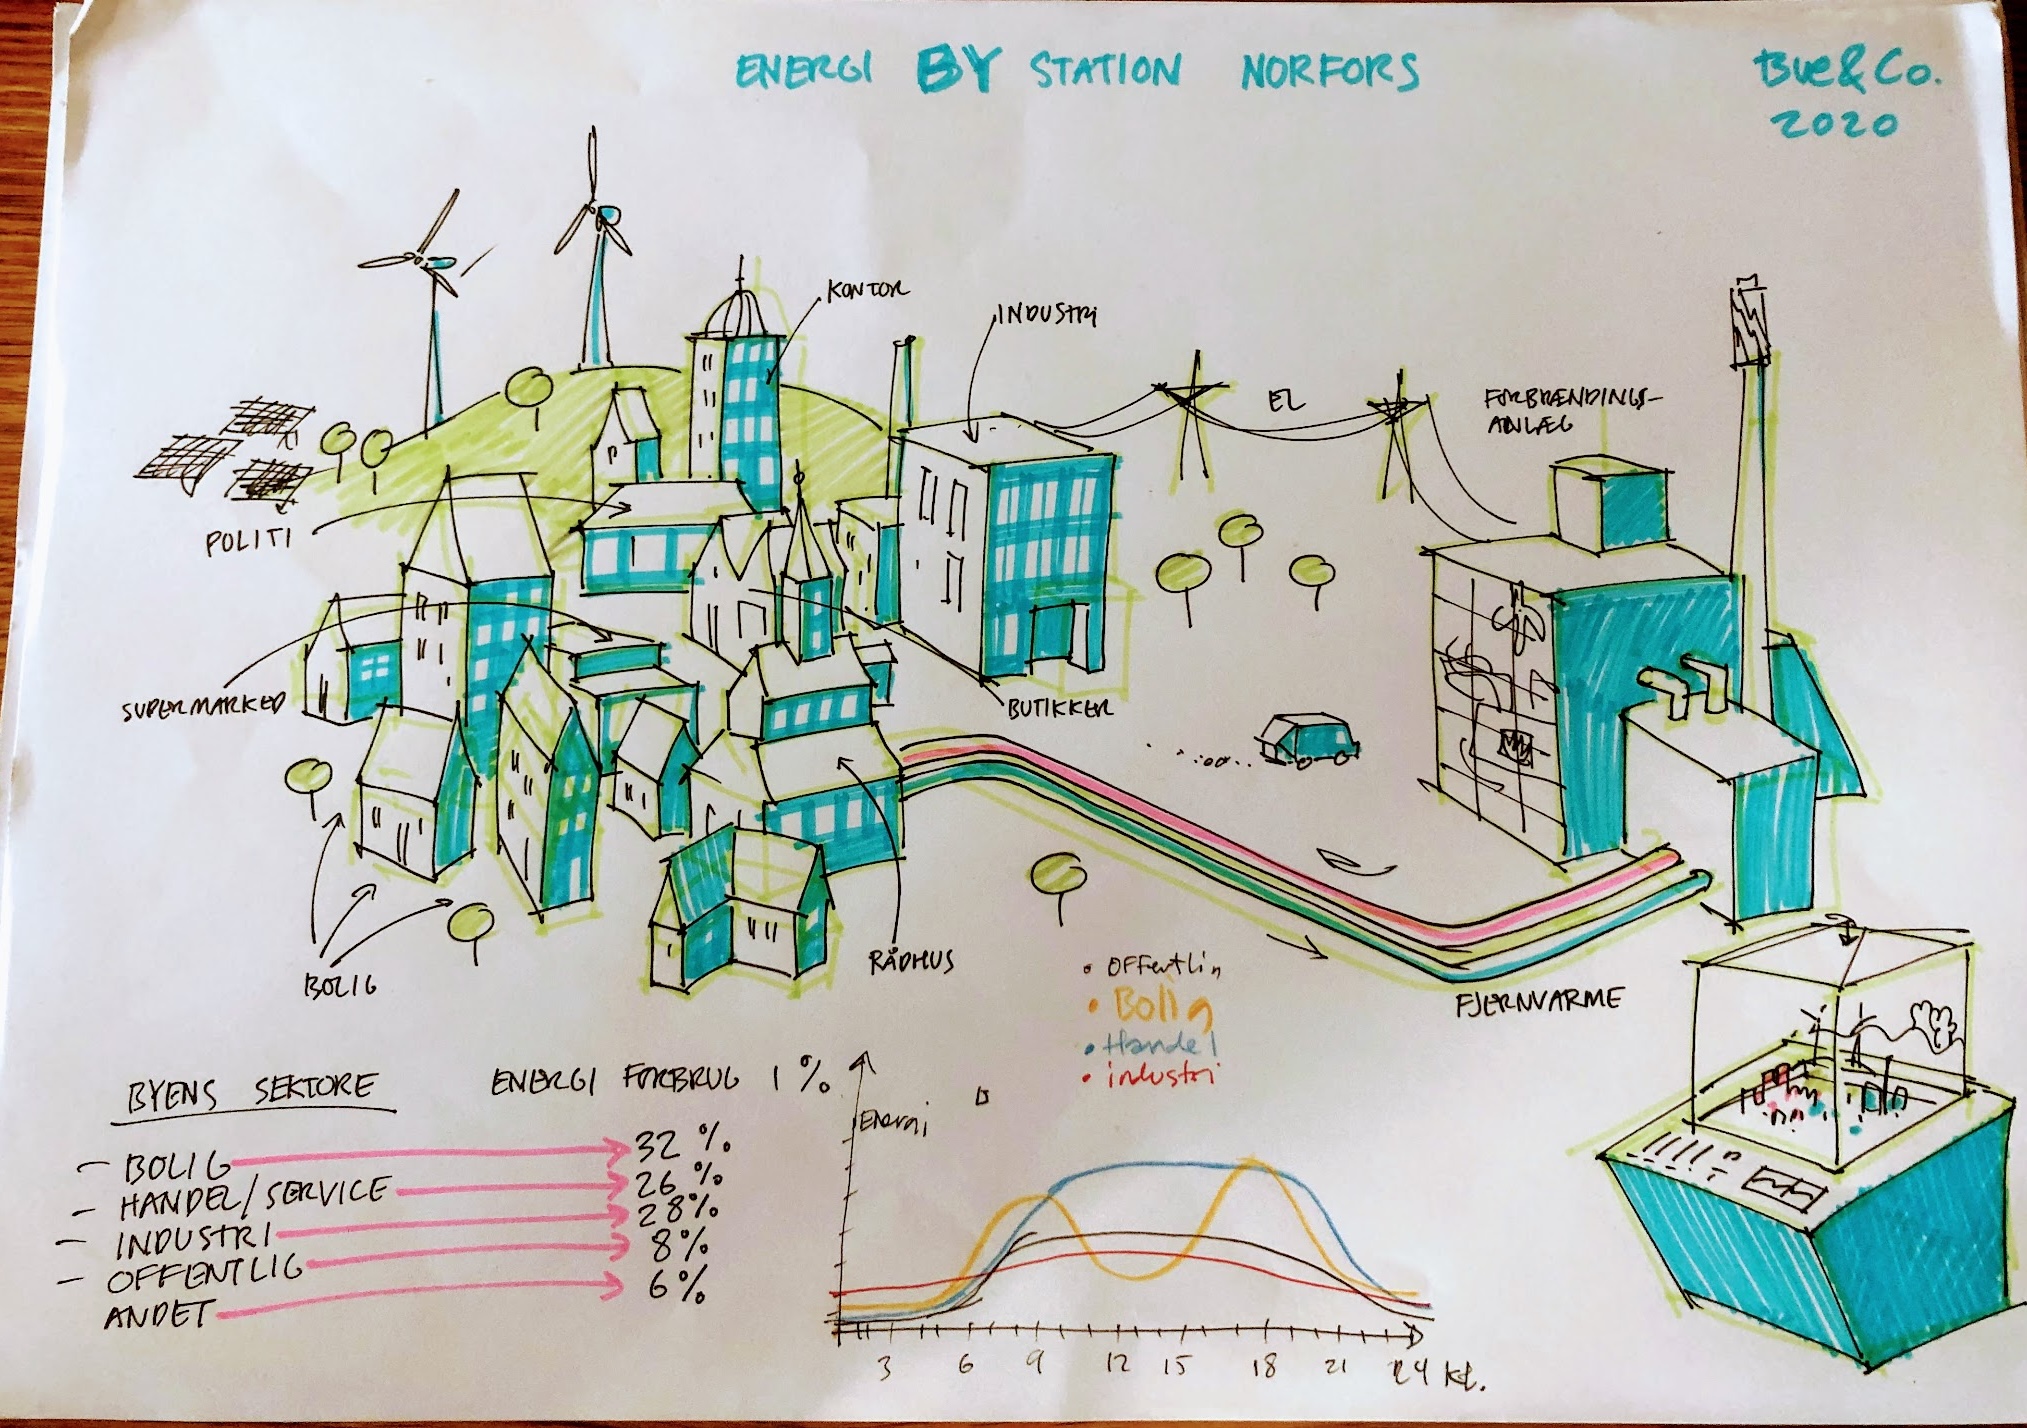 ENERGI BY STATION NORFORS
Bue&Co.
2020
KONTOR
INDUSTRI
EL
FORBRÆNDINGS-
ANLÆG
POLITI
SUPERMARKED
BUTIKKER
BOLIG
RÅDHUS
FJERNVARME
• OFFentlig
• Bolig
• Handel
• industri
BYENS SEKTORE
ENERGI FORBRUG I %
- BOLIG 32 %
- HANDEL/SERVICE 26 %
- INDUSTRI 28%
- OFFENTLIG 8%
ANDET 6%
Energi
3 6 9 12 15 18 21 24 Kl.